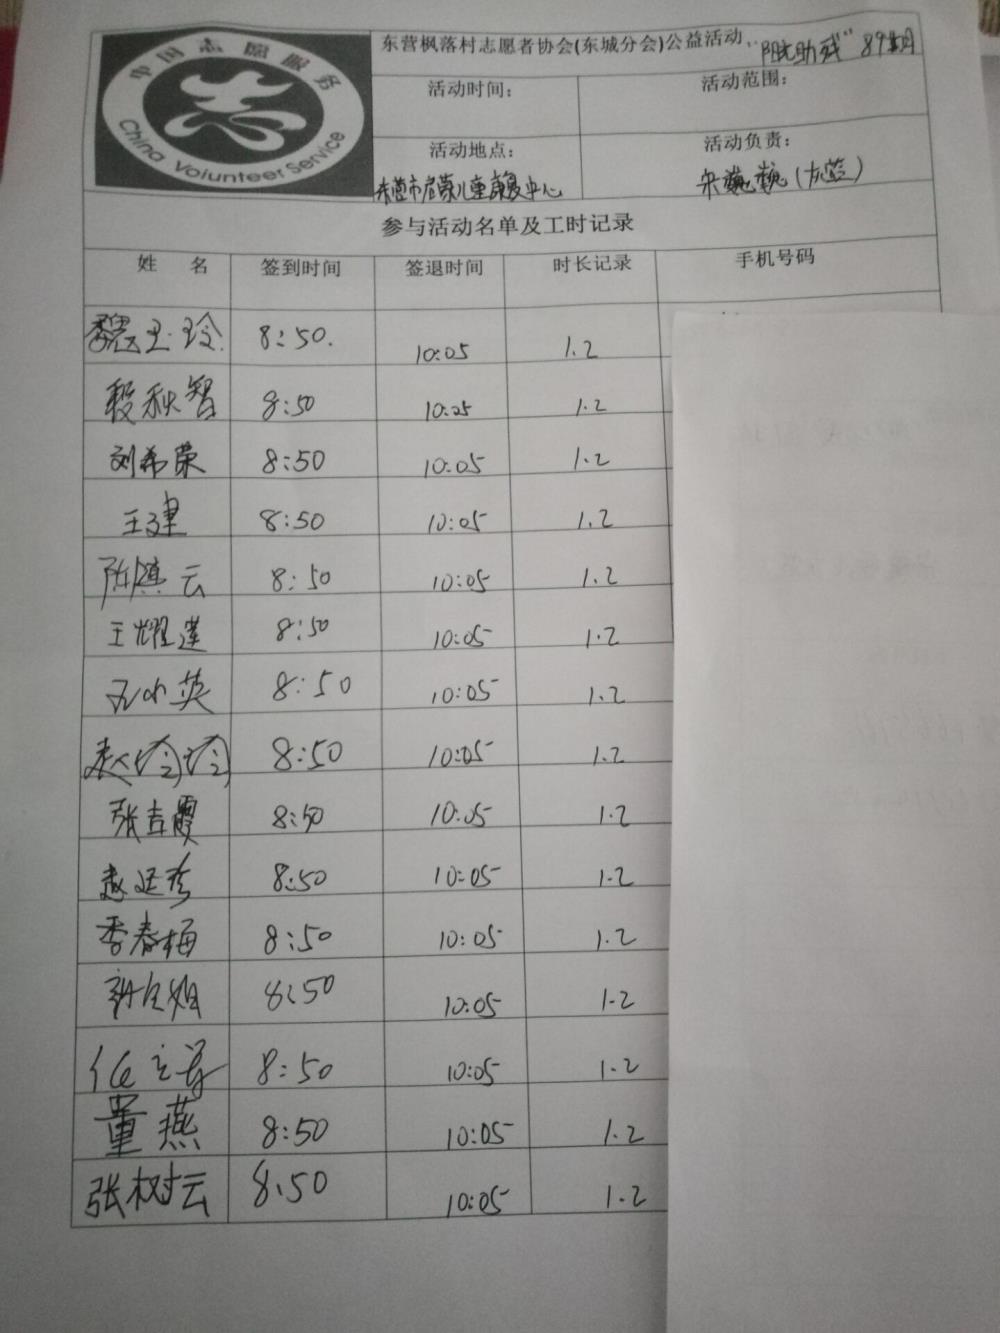 中国志愿服务
China Voiunteer Service
东营枫落村志愿者协会(东城分会)公益活动"阳光助残"89期
活动时间： 活动范围：
活动地点： 活动负责：
东营市启蒙儿童康复中心 宋巍巍(左蓝)
参与活动名单及工时记录
姓 名 签到时间 签退时间 时长记录 手机号码
魏玉玲 8:50. 10:05 1.2
段秋智 8:50 10:25 1.2
刘希荣 8:50 10:05 1.2
王建 8:50 10:05 1.2
陈慎云 8:50 10:05 1.2
王耀莲 8:50 10:05 1.2
小英 8:50 10:05 1.2
赵玲玲 8:50 10:05 1.2
张吉霞 8:50 10:05 1.2
赵廷珍 8:50 10:05 1.2
季春梅 8:50 10:05 1.2
8:50 10:05 1.2
任 8:50 10:05 1.2
董燕 8:50 10:05 1.2
张树云 8:50 10:05 1.2